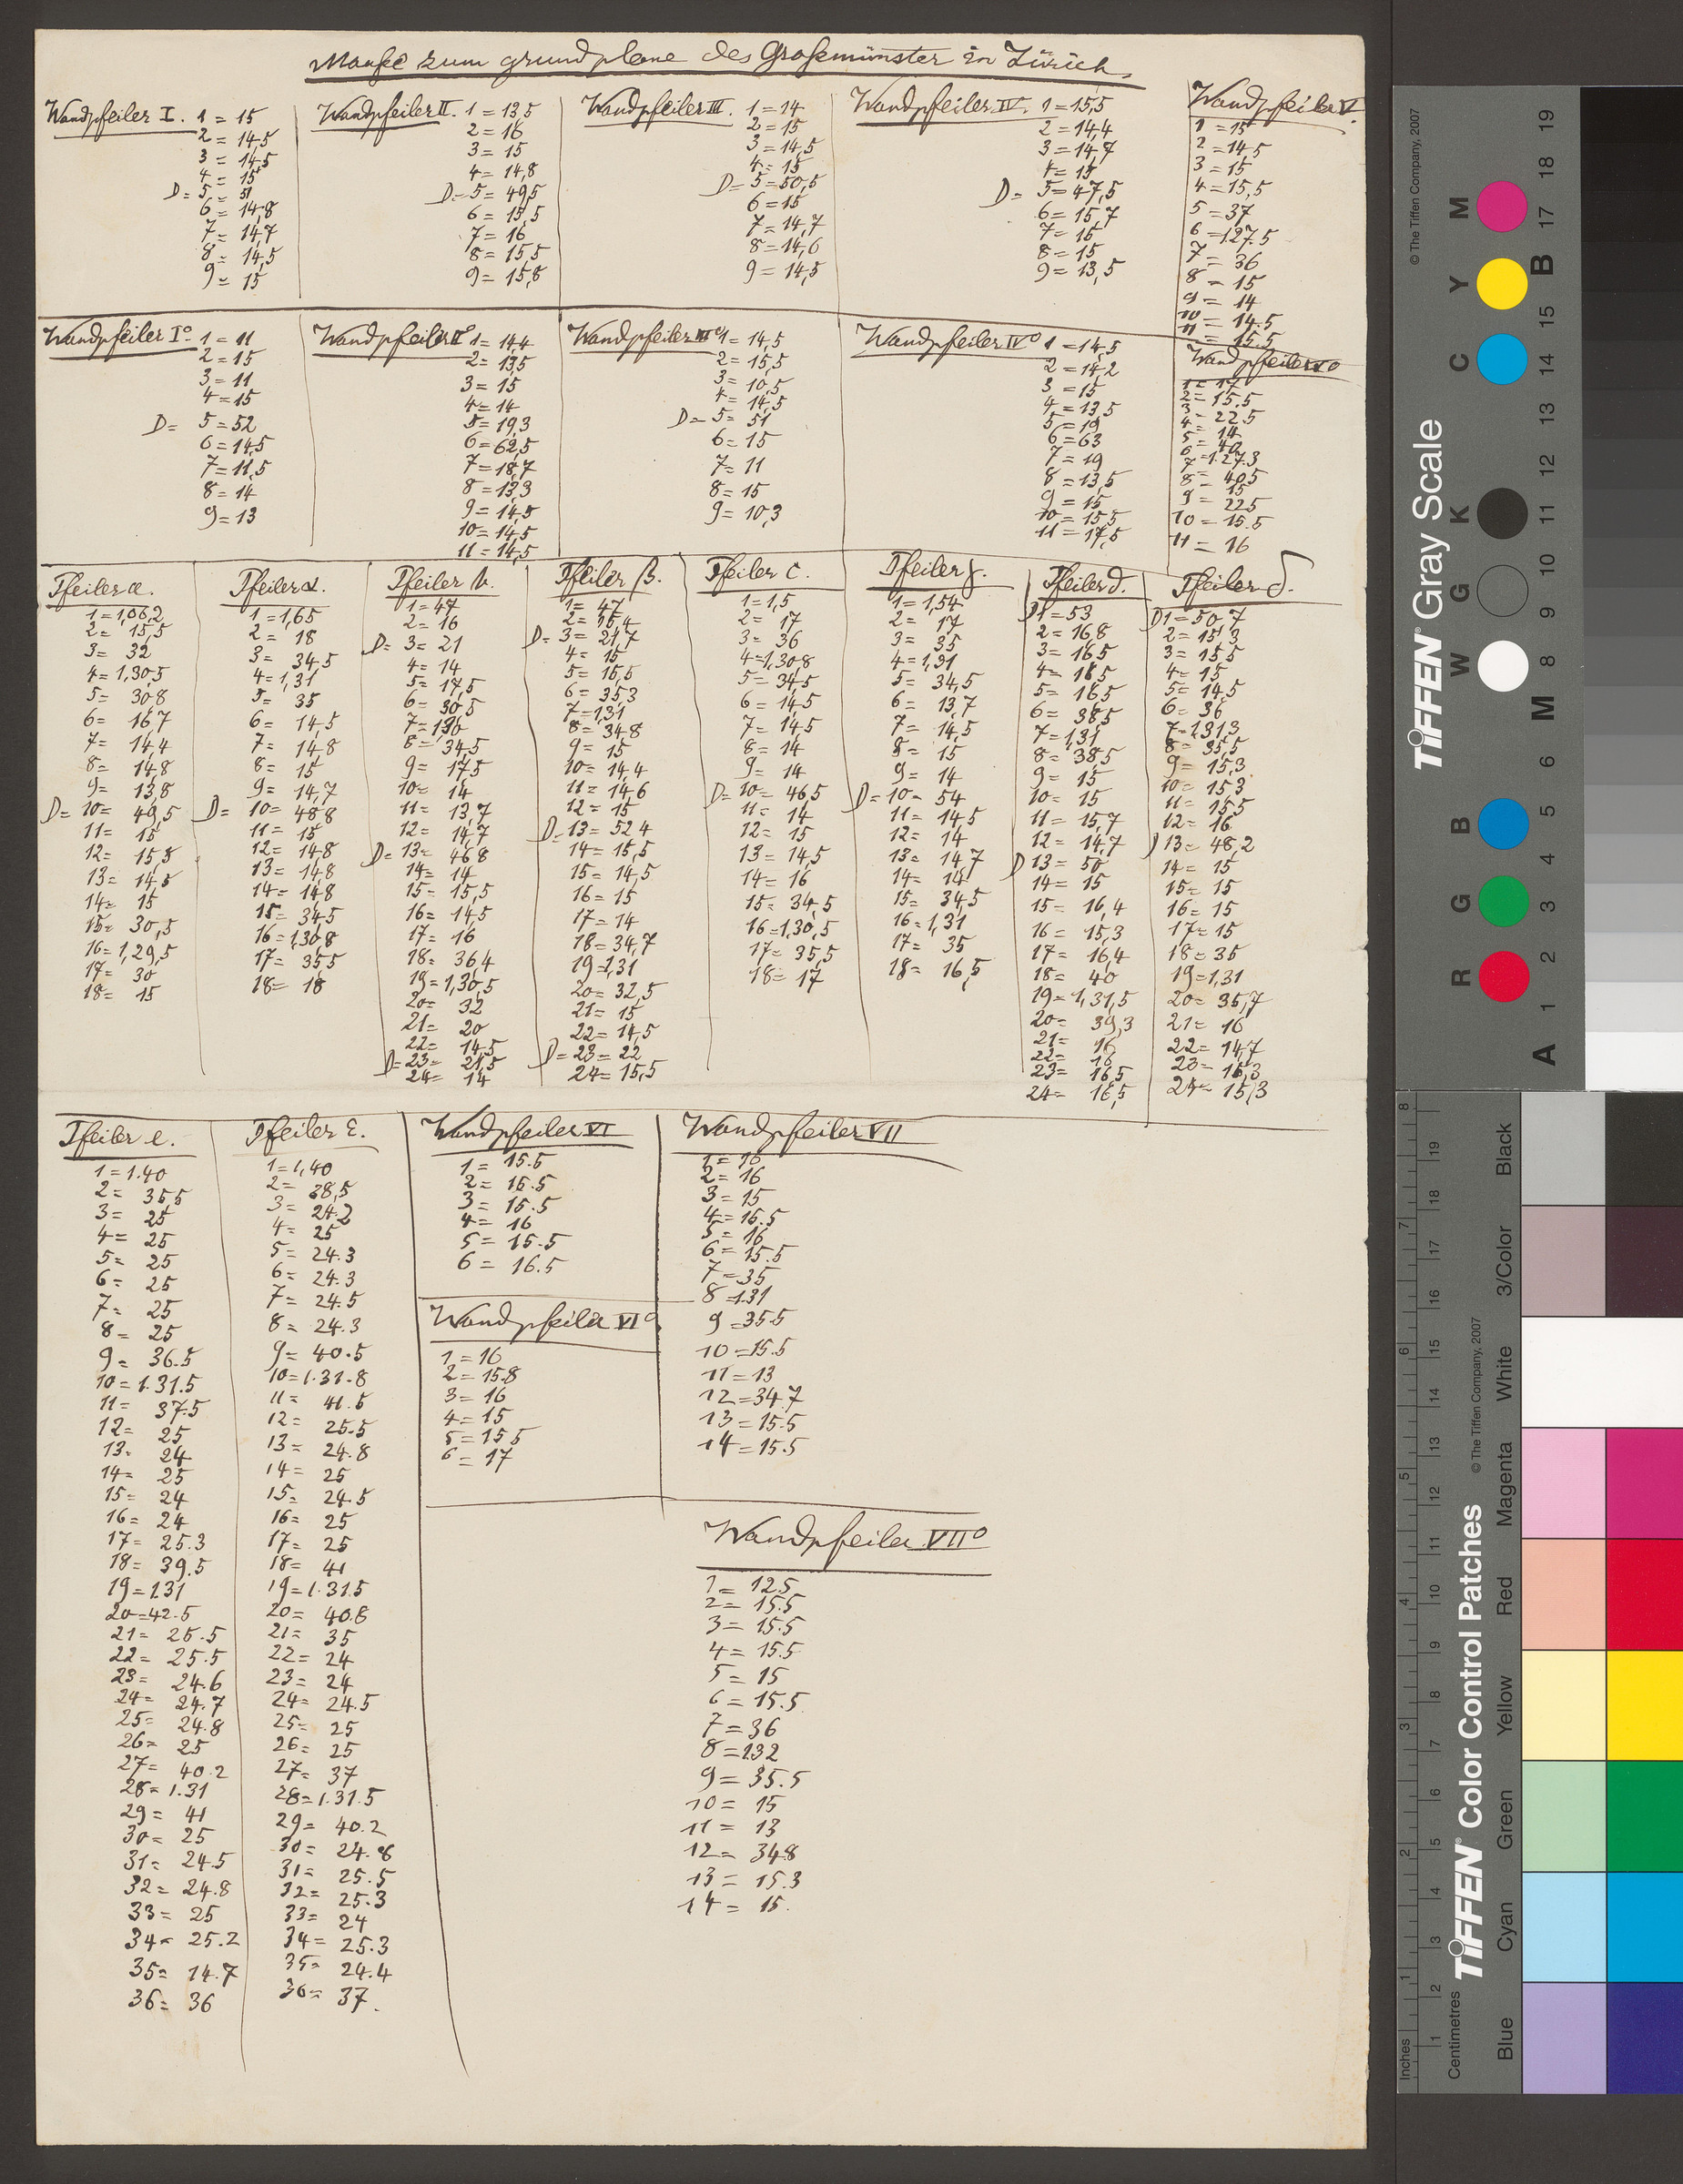 Maaße zum grundplane des Großmünster in Zürich.
Wandpfeiler I.
1 = 15
2 = 14,5
3 = 14,5
4 = 15
D = 5 = 51
6 = 14,8
7 = 14,7
8 = 14,5
9 = 15
Wandpfeiler II.
1 = 13,5
2 = 16
3 = 15
4 = 14,8
D = 5 = 49,5
6 = 15,5
7 = 16
8 = 15,5
9 = 15,8
Wandpfeiler III.
1 = 14
2 = 15
3 = 14,5
4 = 15
D = 5 = 50,5
6 = 15
7 = 14,7
8 = 14,6
9 = 14,5
Wandpfeiler IV.
1 = 15,5
2 = 14,4
3 = 14,7
4 = 15
D = 5 = 47,5
6 = 15,7
7 = 15
8 = 15
9 = 13,5
Wandpfeiler V.
1 = 15
2 = 14,5
3 = 15
4 = 15,5
5 = 37
6 = 1.27.5
7 = 36
8 = 15
9 = 14
10 = 14.5
11 = 15.5
Wandpfeiler I°
1 = 11
2 = 15
3 = 11
4 = 15
D = 5 = 52
6 = 14,5
7 = 11,5
8 = 14
9 = 13
Wandpfeiler II°
1 = 14,4
2 = 13,5
3 = 15
4 = 14
5 = 19,3
6 = 62,5
7 = 18,7
8 = 13,3
9 = 14,5
10 = 14,5
11 = 14,5
Wandpfeiler III°
1 = 14,5
2 = 15,5
3 = 10,5
4 = 14,5
D = 5 = 51
6 = 15
7 = 11
8 = 15
9 = 10,3
Wandpfeiler IV°
1 = 14,5
2 = 14,2
3 = 15
4 = 13,5
5 = 19
6 = 63
7 = 19
8 = 13,5
9 = 15
10 = 15,5
11 = 17,5
Wandpfeiler V°
1 = 17
2 = 15.5
3 = 22.5
4 = 14
5 = 40
7 = 1.27.3
8 = 40.5
9 = 15
= 22.5
10 = 15.5
11 = 16
Pfeiler a.
1 = 1,06,2
2 = 15,5
3 = 32
4 = 1,30,5
5 = 30,8
6 = 16,7
7 = 14,4
8 = 14,8
9 = 13,8
D = 10 = 49,5
11 = 15
12 = 15,5
13 = 14,5
14 = 15
15 = 30,5
16 = 1,29,5
17 = 30
18 = 15
Pfeiler α.
1 = 1,65
2 = 18
3 = 34,5
4 = 1,31
5 = 35
6 = 14,5
7 = 14,8
8 = 15
9 = 14,7
D = 10 = 48,8
11 = 15
12 = 14,8
13 = 14,8
14 = 14,8
15 = 34,5
16 = 1,30,8
17 = 35,5
18 = 18
Pfeiler b.
1 = 47
2 = 16
D = 3 = 21
4 = 14
5 = 17,5
6 = 30,5
7 = 1,30
8 = 34,5
9 = 17,5
10 = 14
11 = 13,7
12 = 14,7
D = 13 = 46,8
14 = 14
15 = 15,5
16 = 14,5
17 = 16
18 = 36,4
19 = 1,30,5
20 = 32
21 = 20
22 = 14,5
D = 23 = 21,5
24 = 14
Pfeiler β.
1 = 47
2 = 15,4
D = 3 = 21,7
4 = 15
5 = 15,5
6 = 35,3
7 = 1,31
8 = 34,8
9 = 15
10 = 14,4
11 = 14,6
12 = 15
D = 13 = 52,4
14 = 15,5
15 = 14,5
16 = 15
17 = 14
18 = 34,7
19 = 1,31
20 = 32,5
21 = 15
22 = 14,5
D = 23 = 22
24 = 15,5
Pfeiler c.
1 = 1,5
2 = 17
3 = 36
4 = 1,30,8
5 = 34,5
6 = 14,5
7 = 14,5
8 = 14
9 = 14
D = 10 = 46,5
11 = 14
12 = 15
13 = 14,5
14 = 16
15 = 34,5
16 = 1,30,5
17 = 35,5
18 = 17
Pfeiler γ.
1 = 1,54
2 = 17
3 = 35
4 = 1,31
5 = 34,5
6 = 13,7
7 = 14,5
8 = 15
9 = 14
D = 10 = 54
11 = 14,5
12 = 14
13 = 14,7
14 = 14
15 = 34,5
16 = 1,31
17 = 35
18 = 16,5
Pfeiler d.
D 1 = 53
2 = 16,8
3 = 16,5
4 = 16,5
5 = 16,5
6 = 38,5
7 = 1,31
8 = 38,5
9 = 15
10 = 15
11 = 15,7
12 = 14,7
D 13 = 50
14 = 15
15 = 16,4
16 = 15,3
17 = 16,4
18 = 40
19 = 1,31,5
20 = 39,3
21 = 16
22 = 16
23 = 16,5
24 = 16,5
Pfeiler δ.
D 1 = 50,7
2 = 15,3
3 = 15,5
4 = 15
5 = 14,5
6 = 36
7 = 1.31,3
8 = 35,5
9 = 15,3
10 = 15,3
11 = 15,5
12 = 16
D 13 = 48,2
14 = 15
15 = 15
16 = 15
17 = 15
18 = 35
19 = 1,31
20 = 35,7
21 = 16
22 = 14,7
23 = 15,3
24 = 15,3
Pfeiler e.
1 = 1.40
2 = 35,5
3 = 25
4 = 25
5 = 25
6 = 25
7 = 25
8 = 25
9 = 36.5
10 = 1.31.5
11 = 37.5
12 = 25
13 = 24
14 = 25
15 = 24
16 = 24
17 = 25.3
18 = 39.5
19 = 1.31
20 = 42.5
21 = 25.5
22 = 25.5
23 = 24.6
24 = 24.7
25 = 24.8
26 = 25
27 = 40.2
28 = 1.31
29 = 41
30 = 25
31 = 24.5
32 = 24.8
33 = 25
34 = 25.2
35 = 14.7
36 = 36
Pfeiler ε.
1 = 1,40
2 = 38,5
3 = 24.2
4 = 25
5 = 24.3
6 = 24.3
7 = 24.5
8 = 24.3
9 = 40.5
10 = 1.31.8
11 = 41.5
12 = 25.5
13 = 24.8
14 = 25
15 = 24.5
16 = 25
17 = 25
18 = 41
19 = 1.31.5
20 = 40.8
21 = 35
22 = 24
23 = 24
24 = 24.5
25 = 25
26 = 25
27 = 37
28 = 1.31.5
29 = 40.2
30 = 24.8
31 = 25.5
32 = 25.3
33 = 24
34 = 25.3
35 = 24.4
36 = 37.
Wandpfeiler VI
1 = 15.5
2 = 15.5
3 = 15.5
4 = 16
5 = 15.5
6 = 16.5
Wandpfeiler VI°
1 = 16
2 = 15.8
3 = 16
4 = 15
5 = 15 5
6 = 17
Wandpfeiler VII
1 = 16
2 = 16
3 = 15
4 = 15.5
5 = 16
6 = 15.5
7 = 35
8 = 1.31
9 = 35.5
10 = 15.5
11 = 13
12 = 34.7
13 = 15.5
14 = 15.5
Wandpfeiler VII°
1 = 12.5
2 = 15.5
3 = 15.5
4 = 15.5
5 = 15
6 = 15.5
7 = 36
8 = 1.32
9 = 35.5
10 = 15
11 = 13
12 = 34.8
13 = 15.3
14 = 15.
TIFFEN® Gray Scale
© The Tiffen Company, 2007
R G B W G K C Y M
A 1 2 3 4 5 6 M 8 9 10 11 12 13 14 15 B 17 18 19
TIFFEN® Color Control Patches
© The Tiffen Company, 2007
Blue Cyan Green Yellow Red Magenta White 3/Color Black
Inches 1 2 3 4 5 6 7 8
Centimetres 1 2 3 4 5 6 7 8 9 10 11 12 13 14 15 16 17 18 19